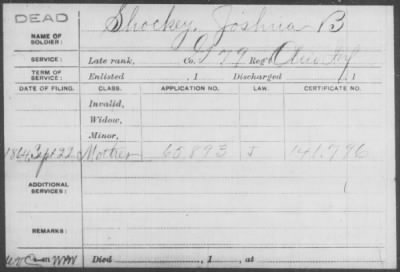 DEAD
NAME OF SOLDIER: Shockey, Joshua B
SERVICE: Late rank, Co. G 79 Reg't Inf
TERM OF SERVICE: Enlisted , 1 Discharged , 1
DATE OF FILING. CLASS. APPLICATION NO. LAW. CERTIFICATE NO.
Invalid,
Widow,
Minor,
1864 Sept 22 Mother 65.893 J 141.796
ADDITIONAL SERVICES:
REMARKS:
Died , 1 , at